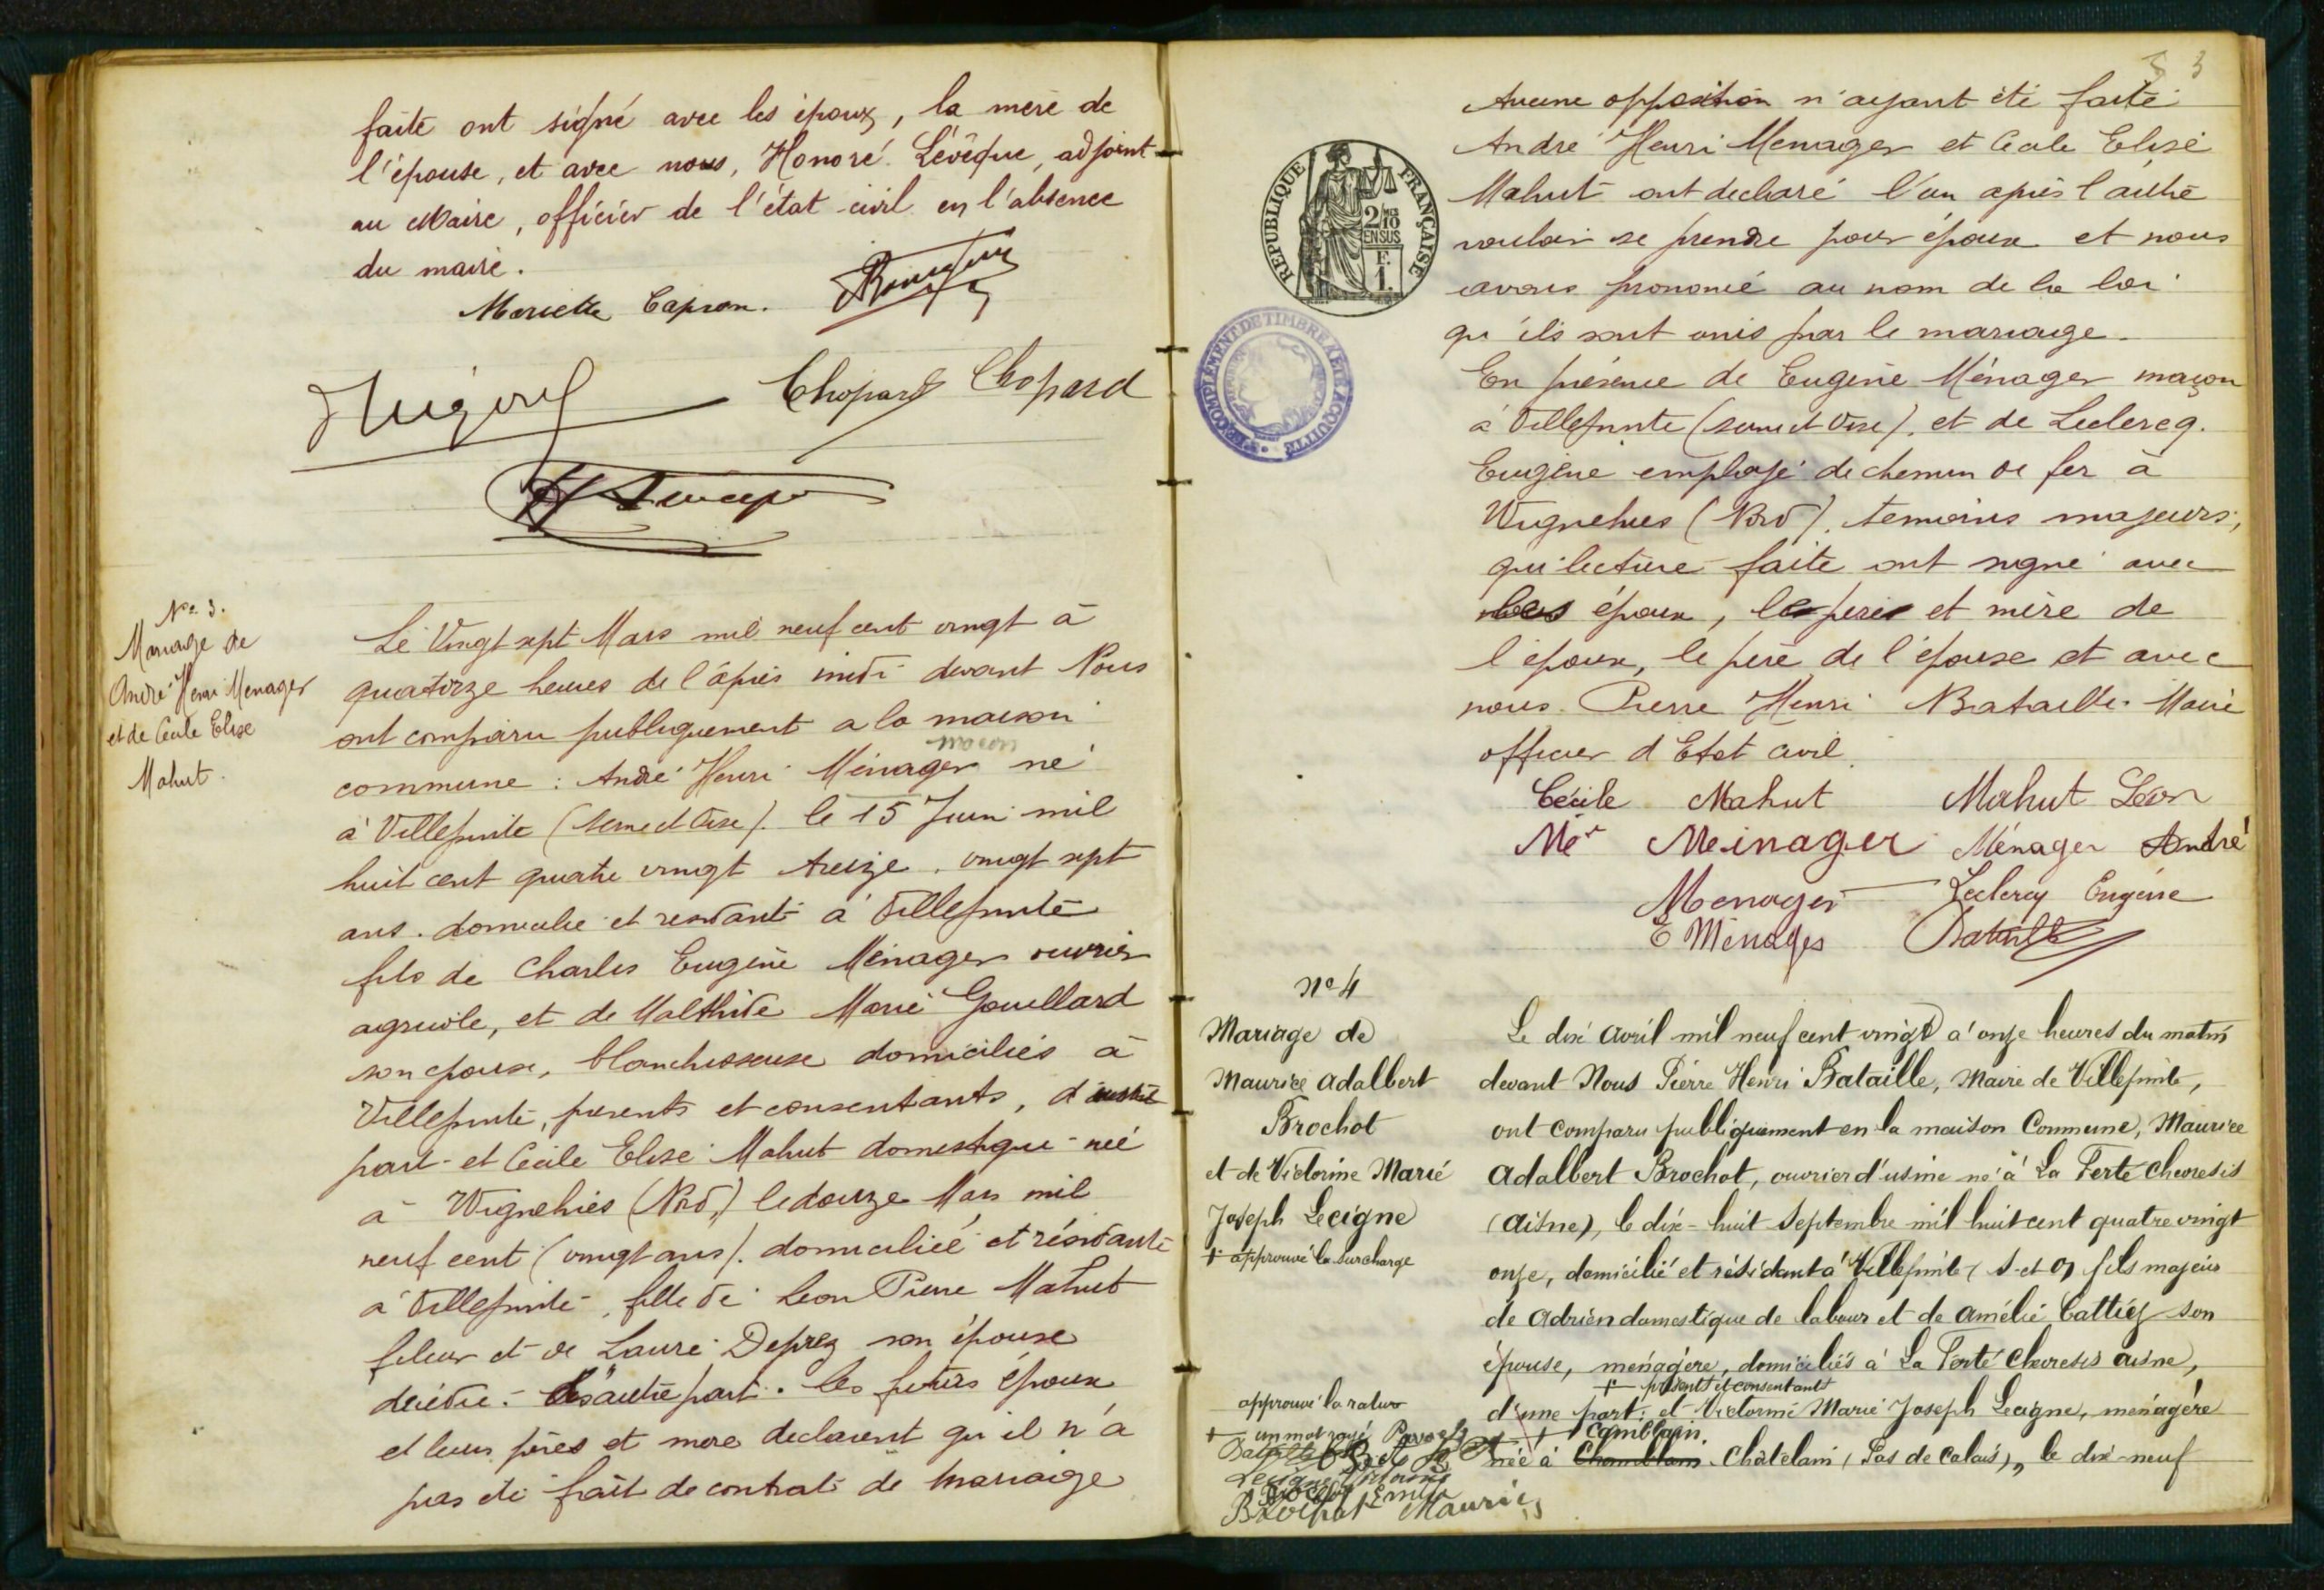 faite ont signé avec les époux, la mère de
l'épouse, et avec nous, Honoré Lévêque, adjoint
au Maire, officier de l'état-civil en l'absence
du maire.
Mariette Capron.
Chopard Chopard
No 3.
Mariage de
André Henri Menager
et de Cécile Elise
Mahut.
Le Vingt sept Mars mil neuf cent vingt à
quatorze heures de l'après midi devant Nous
ont comparu publiquement a la maison
maçon
commune : André Henri Ménager né
à Villepinte (Seine et Oise). le 15 Juin mil
huit cent quatre vingt treize. vingt sept
ans. domicilie et residant à Villepinte
fils de Charles Eugène Ménager ouvrier
agricole, et de Malthide Marie Gouillard
son epouse, blanchisseuse domiciliés à
Villepinte, presents et consentants, d'une
part - et Cécile Elise Mahut domestique née
à Wignehies (Nord) le douze Mars mil
neuf cent (vingt ans). domiciliée et résidante
à Villepinte, fille de Leon Pierre Mahut
fileur et de Laure Deprez son épouse
décédée. d'autre part. les futurs époux
et leurs pères et mere declarent qu'il n'a
pas été fait de contrat de mariage
3
RÉPUBLIQUE FRANÇAISE
2/10
EN SUS
F.
1.
COMPLÉMENT DE TIMBRE A ÉTÉ ACQUITTÉ
Aucune opposition n'ayant été faite
André Henri Menager et Cécile Elise
Mahut ont declaré l'un après l'autre
vouloir se prendre pour époux et nous
avons prononcé au nom de la loi
qu'ils sont unis par le mariage.
En présence de Eugène Ménager maçon
à Villepinte (seine et Oise). et de Leclercq.
Eugène employé de chemin de fer à
Wignehies (Nord). temoins majeurs,
qui lecture faite ont signé avec
les époux, les père et mère de
l'époux, le père de l'épouse et avec
nous Pierre Henri Bataille Maire
officier d'Etat civil.
Cécile Mahut Mahut Léon
Me Meinager Ménager André
Menager Leclercq Eugène
E Ménager Bataille
No 4
Mariage de
Maurice Adalbert
Brochot
et de Victorine Marie
Joseph Lecigne
+ approuvé la surcharge
Le dix Avril mil neuf cent vingt à onze heures du matin
devant Nous Pierre Henri Bataille, Maire de Villepinte,
ont comparu publiquement en la maison Commune, Maurice
Adalbert Brochot, ouvrier d'usine né à La Ferté Chevresis
(Aisne), le dix-huit Septembre mil huit cent quatre vingt
onze, domicilié et résidant à Villepinte (S-et O) fils majeur
de Adrien domestique de labour et de Amélie Cattiez son
épouse, ménagère, domiciliés à La Ferté Chevresis Aisne,
+ présents et consentants
d'une part; et Victorine Marie Joseph Lecigne, ménagère
+ Camblain
née à Chamblain Châtelain (Pas de Calais), le dix-neuf
approuvé la rature
+ un mot rayé
Lecigne Victorine
Brochot Maurice